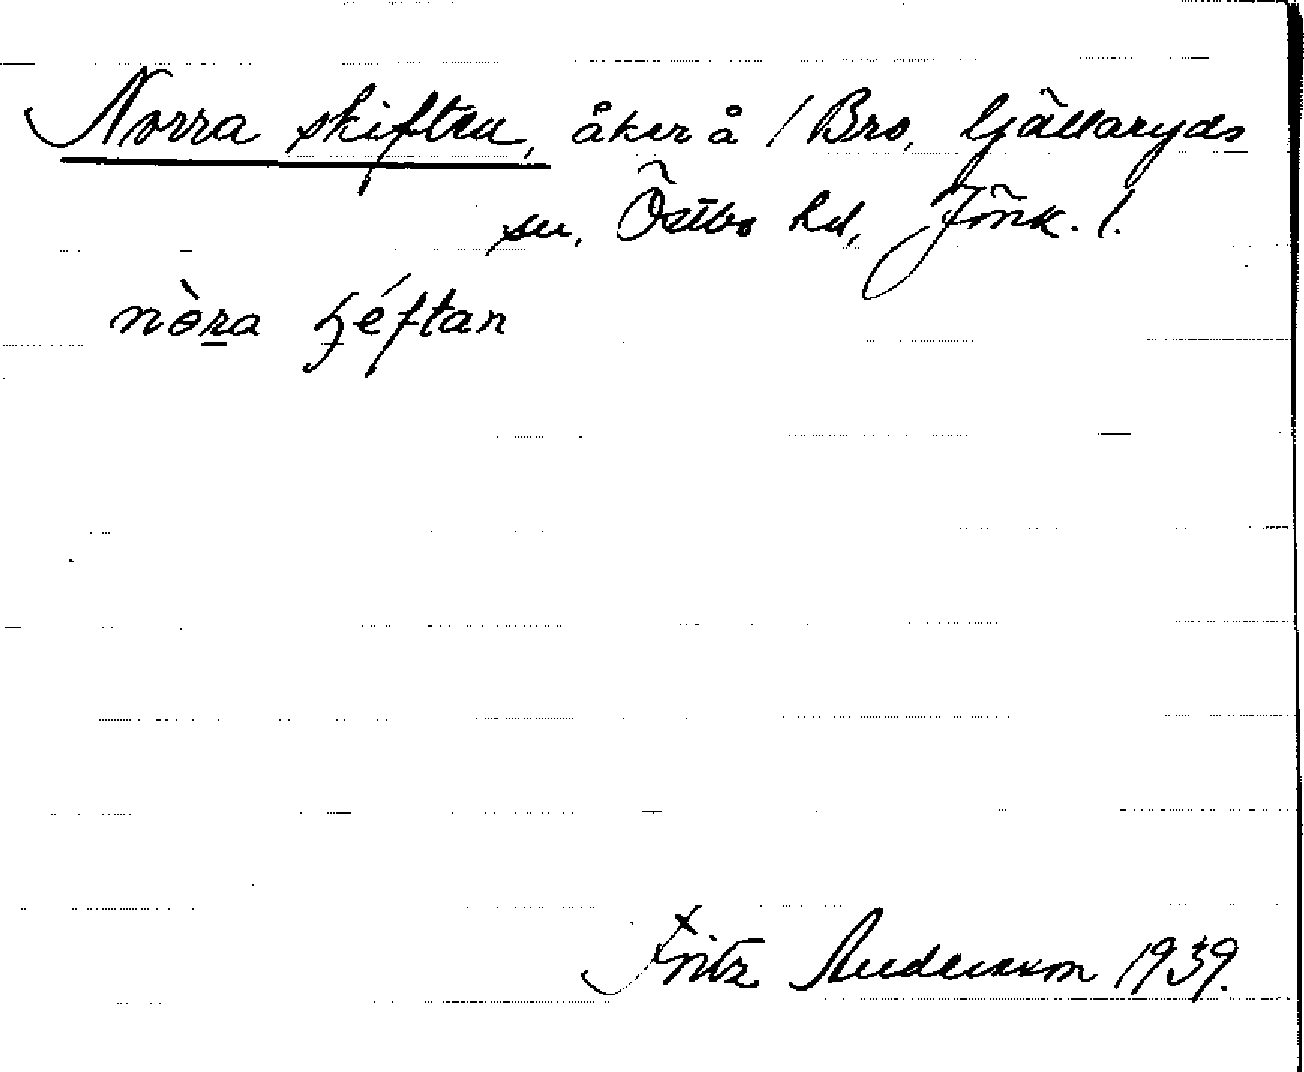 Norra skiften, åker å / Bro, Gällaryds
sn, Östbo hd, Jönk. l.
nòra ʂéftan
Fritz Andersson 1939.